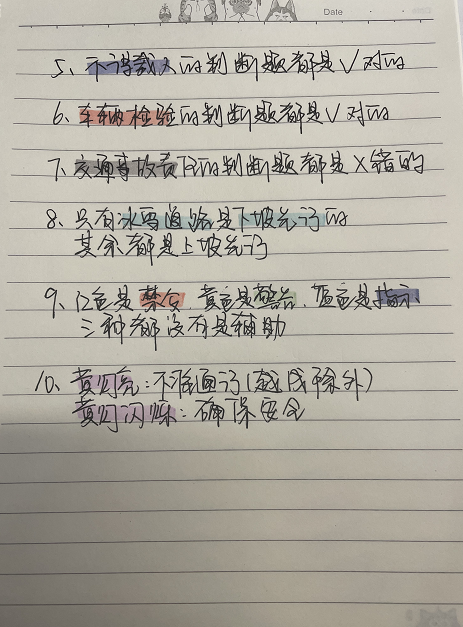 Date
5、不得载人的判断题都是√对的
6、车辆检验的判断题都是√对的
7、交通事故责任的判断题都是×错的
8、只有冰雪道路是下坡先行的
其余都是上坡先行
9、红色是禁令，黄色是警告，蓝色是指示，
三种都没有是辅助
10、黄灯亮：不准通行(越线除外)
黄灯闪烁：确保安全